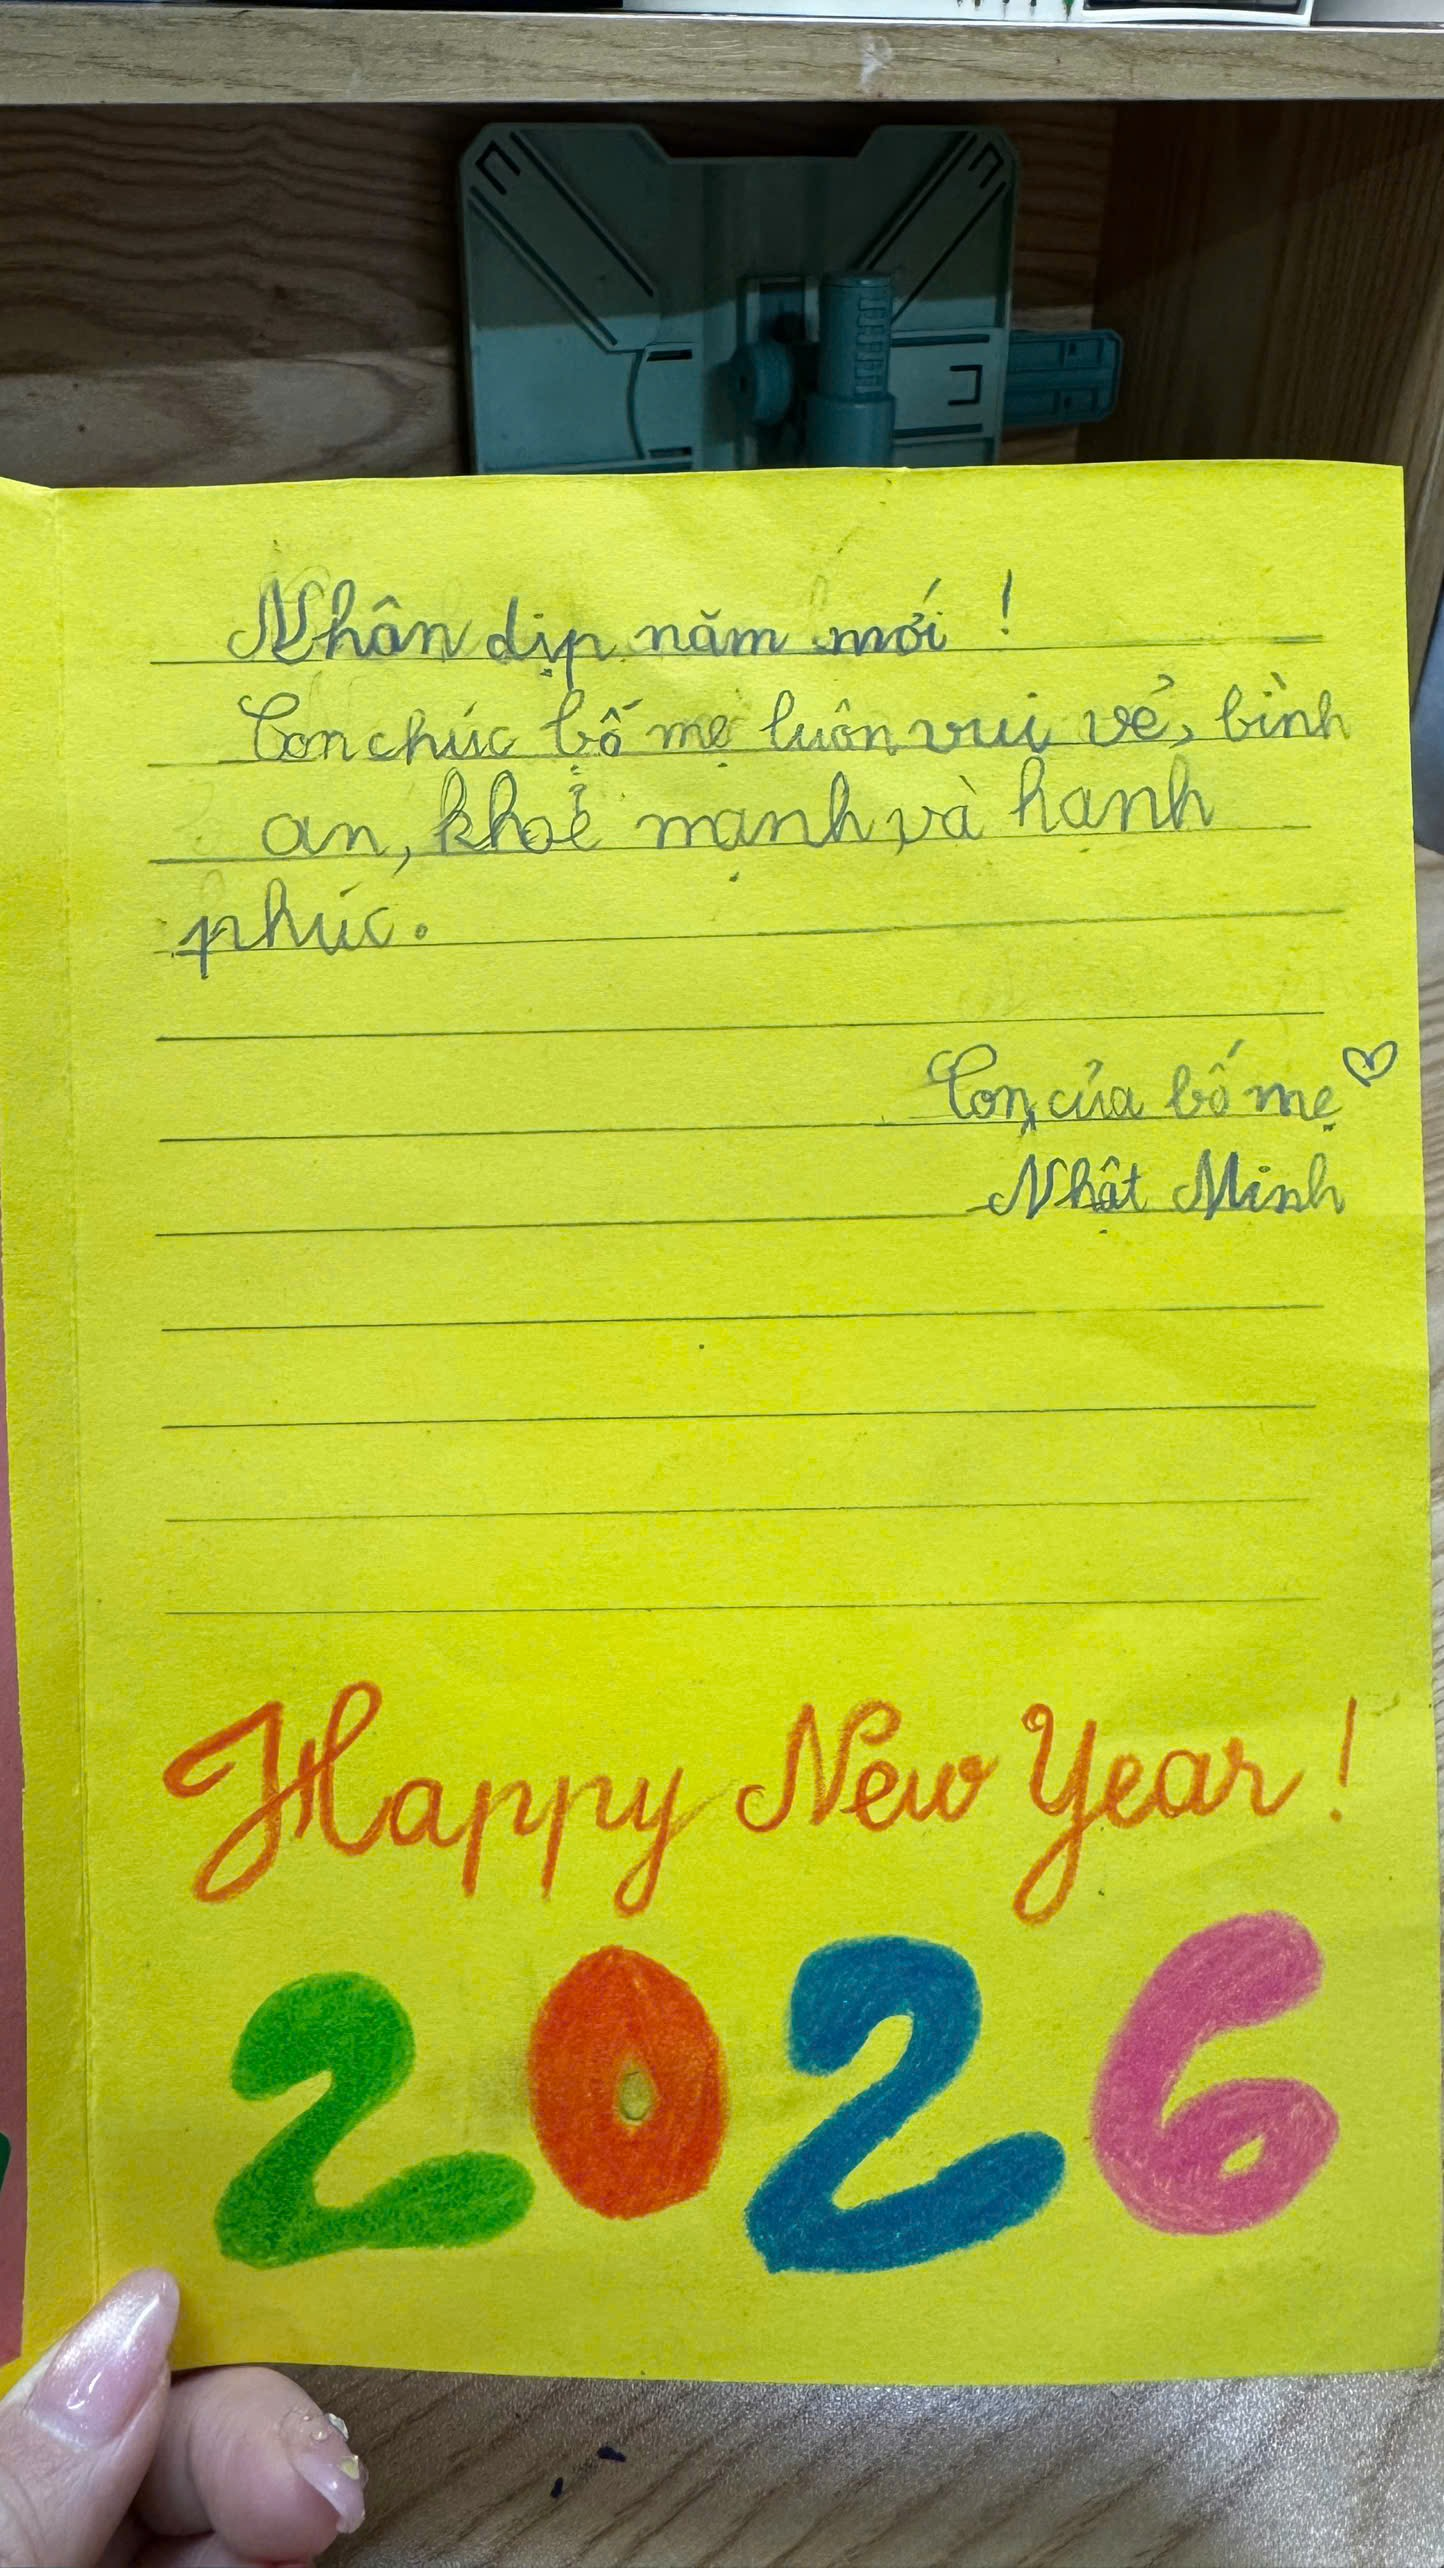 Nhân dịp năm mới !
Con chúc bố mẹ luôn vui vẻ, bình
an, khoẻ mạnh, và hanh
phúc.
Con của bố mẹ
Nhật Minh
Happy New Year !
2026